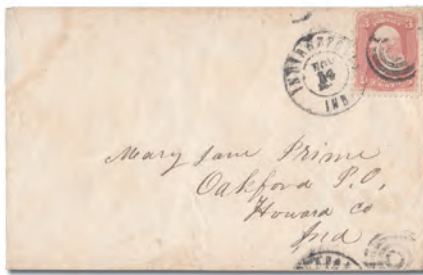 3 3
INDIANAPOLIS
NOV
14
IND
Mary Jane Prime
Oakford P.O,
Howard co
Ind